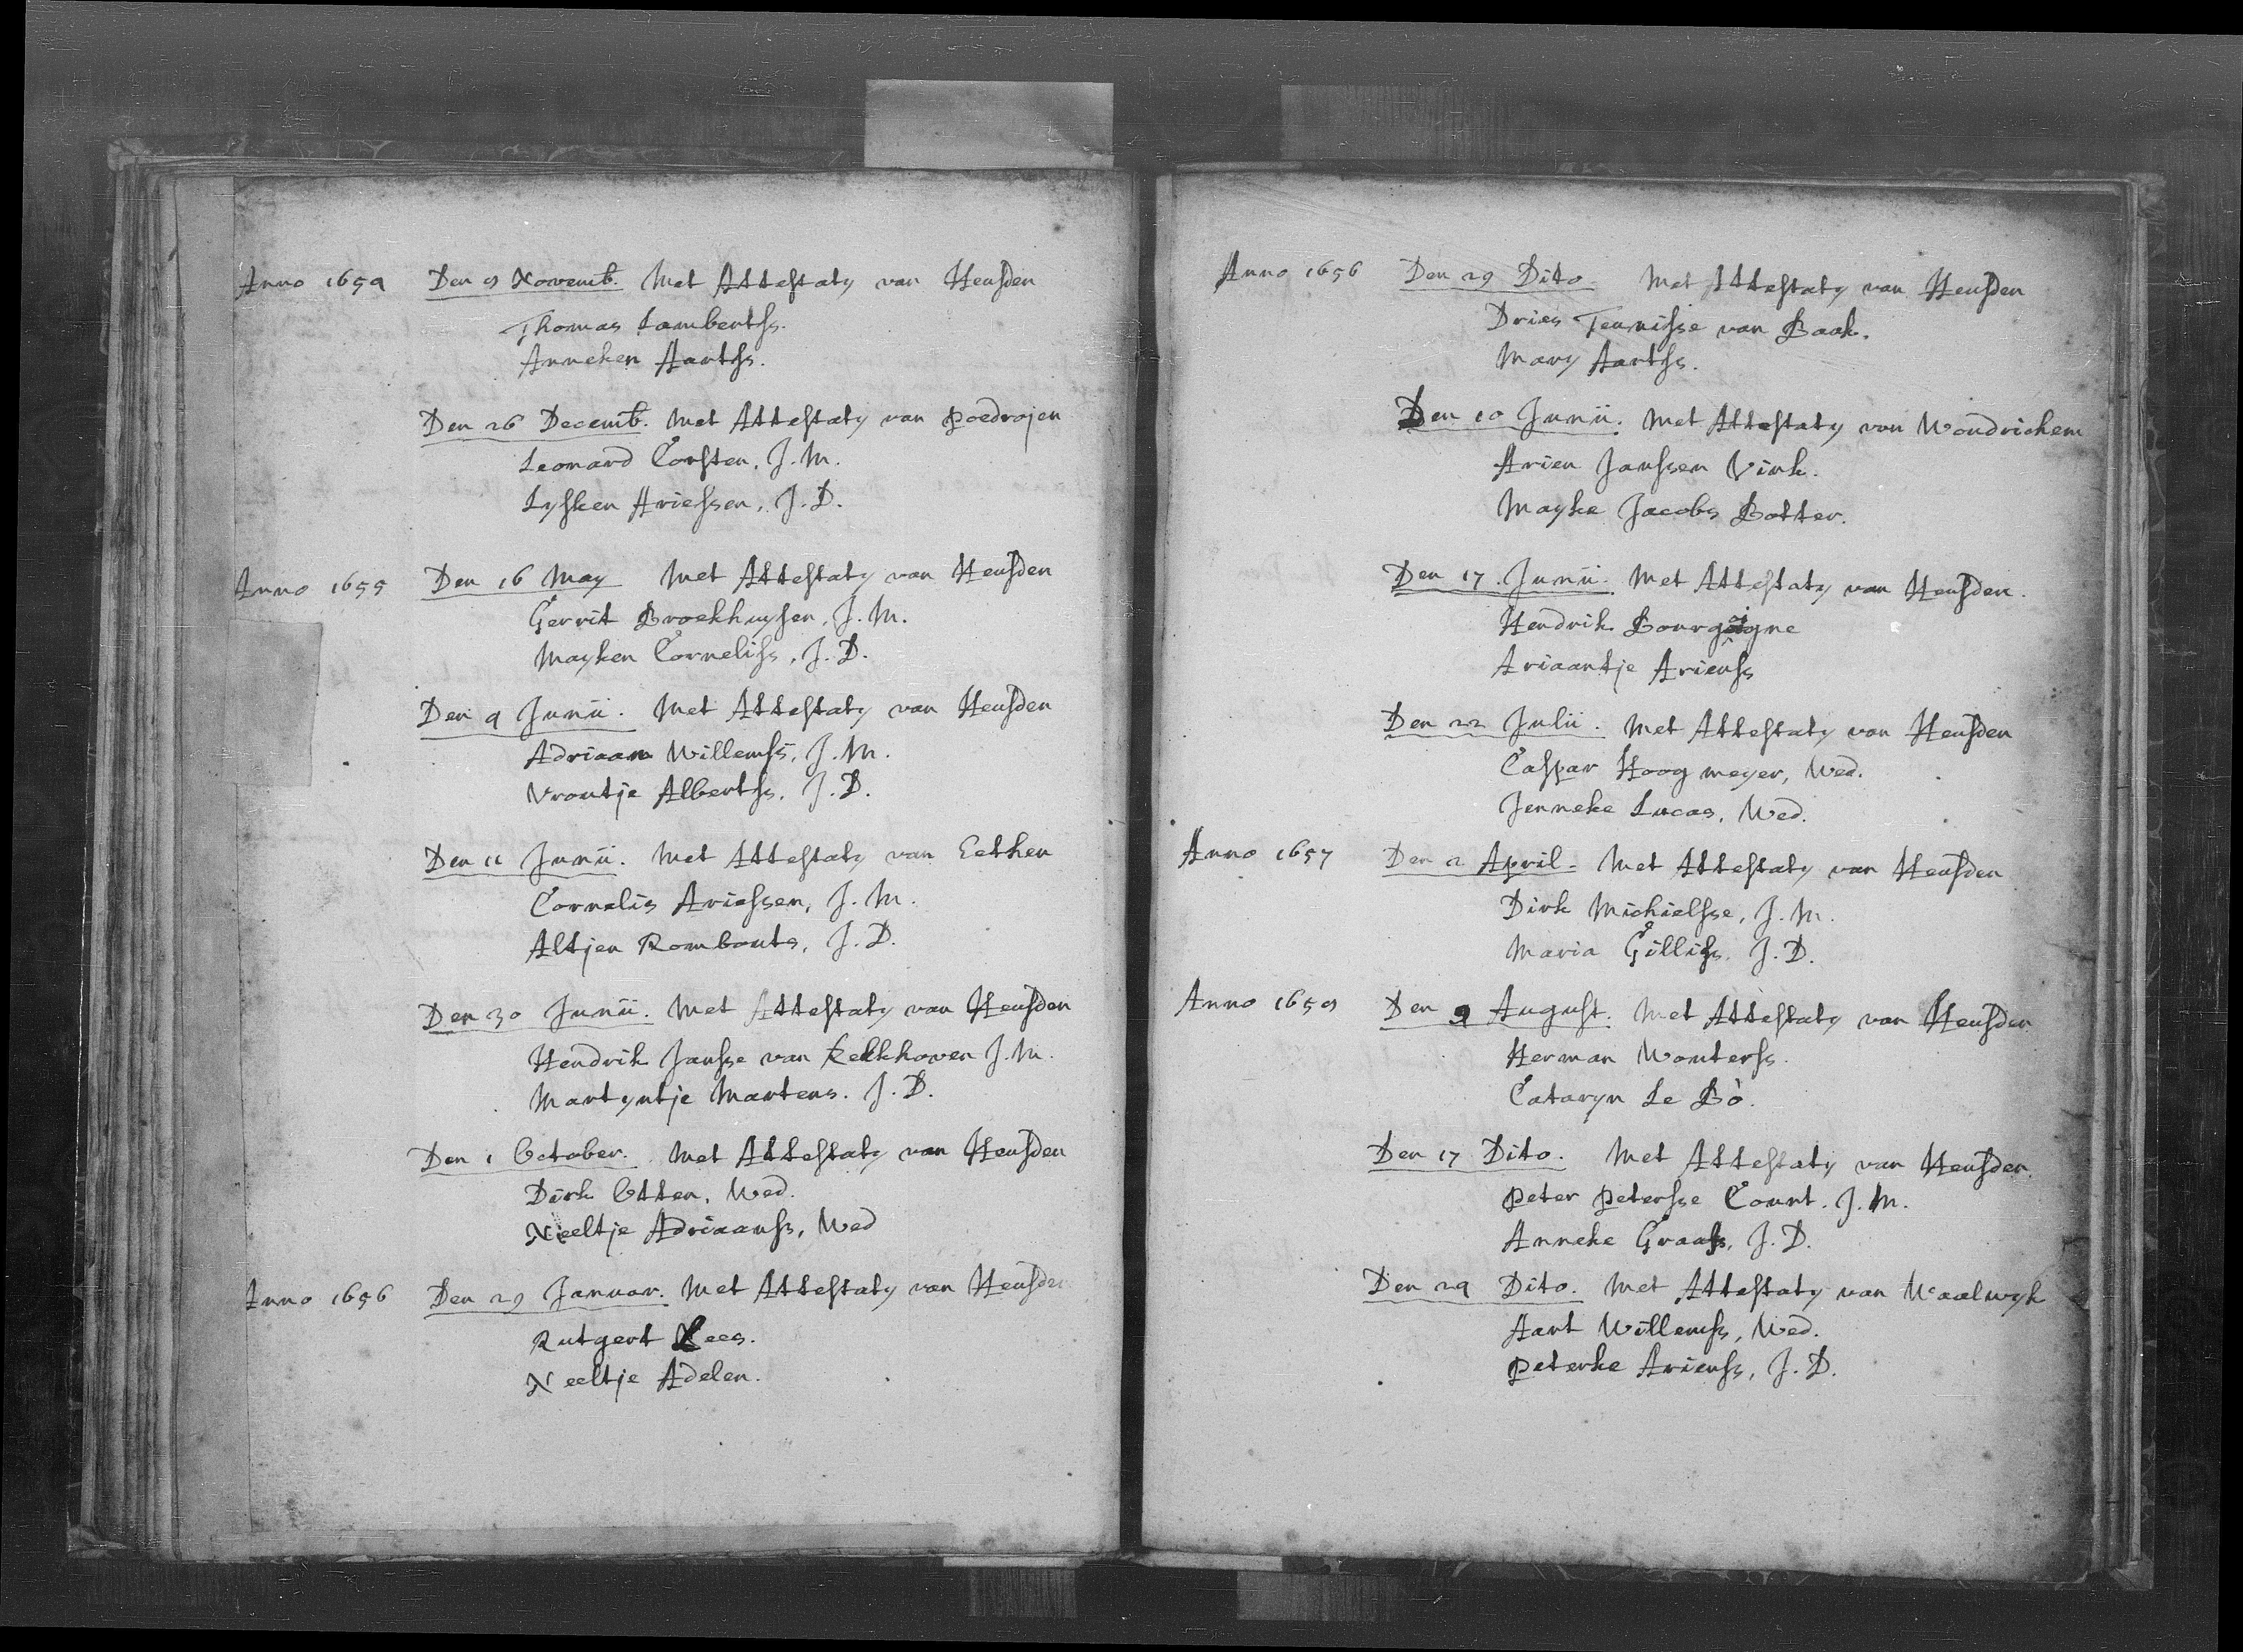 Anno 1654 Den 9 Novemb. Met Attestaty van Heusden
Thomas Lambertss.
Anneken Aartss.
Den 26 Decemb. Met Attestaty van Poedrojen
Leonard Corsten, J. M.
Lysken Ariessen, J. D.
Anno 1655 Den 16 May Met Attestaty van Heusden
Gerrit Broekhuysen, J. M.
Mayken Corneliss, J. D.
Den 4 Junii. Met Attestaty van Heusden
Adriaan Willemss, J. M.
Vroutje Albertss, J. D.
Den 11 Junii. Met Attestaty van Eethen
Cornelis Ariessen, J. M.
Altjen Rombouts, J. D.
Den 30 Junii. Met Attestaty van Heusden
Hendrik Jansse van Kelkhoven J. M.
Martyntje Martens. J. D.
Den 1 October. Met Attestaty van Heusden
Dirk Otten, Wed.
Neeltje Adriaanss, Wed
Anno 1656 Den 29 Januar. Met Attestaty van Heusden
Rutgert Kees.
Neeltje Adelen.
Anno 1656 Den 29 Dito. Met Attestaty van Heusden
Dries Teunisse van Baak.
Mary Aartss.
Den 10 Junii. Met Attestaty van Woudrichem
Arien Janssen Vink.
Mayke Jacobs Botter.
Den 17. Junii. Met Attestaty van Heusden.
Hendrik Bourgoigne
Ariaantje Arienss
Den 22 Julii. Met Attestaty van Heusden
Caspar Hoogmeyer, Wed.
Jenneke Lucas, Wed.
Anno 1657 Den 2 April. Met Attestaty van Heusden
Dirk Michielsse, J. M.
Maria Gilliss, J. D.
Anno 1659 Den 9 August. Met Attestaty van Heusden
Herman Wouterss.
Cataryn Le Bò.
Den 17 Dito. Met Attestaty van Heusden.
Peter Petersse Count. J. M.
Anneke Graafs, J. D.
Den 24 Dito. Met Attestaty van Waalwyk
Aart Willemss, Wed.
Peterke Arienss, J. D.